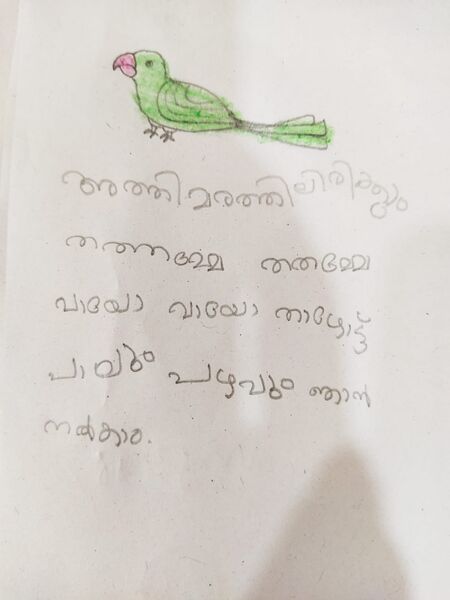 അത്തിമരത്തിലിരിക്കും
തത്തമ്മേ തത്തമ്മേ
വായോ വായോ താഴോട്ട്
പാലും പഴവും ഞാൻ
നൽകാം.